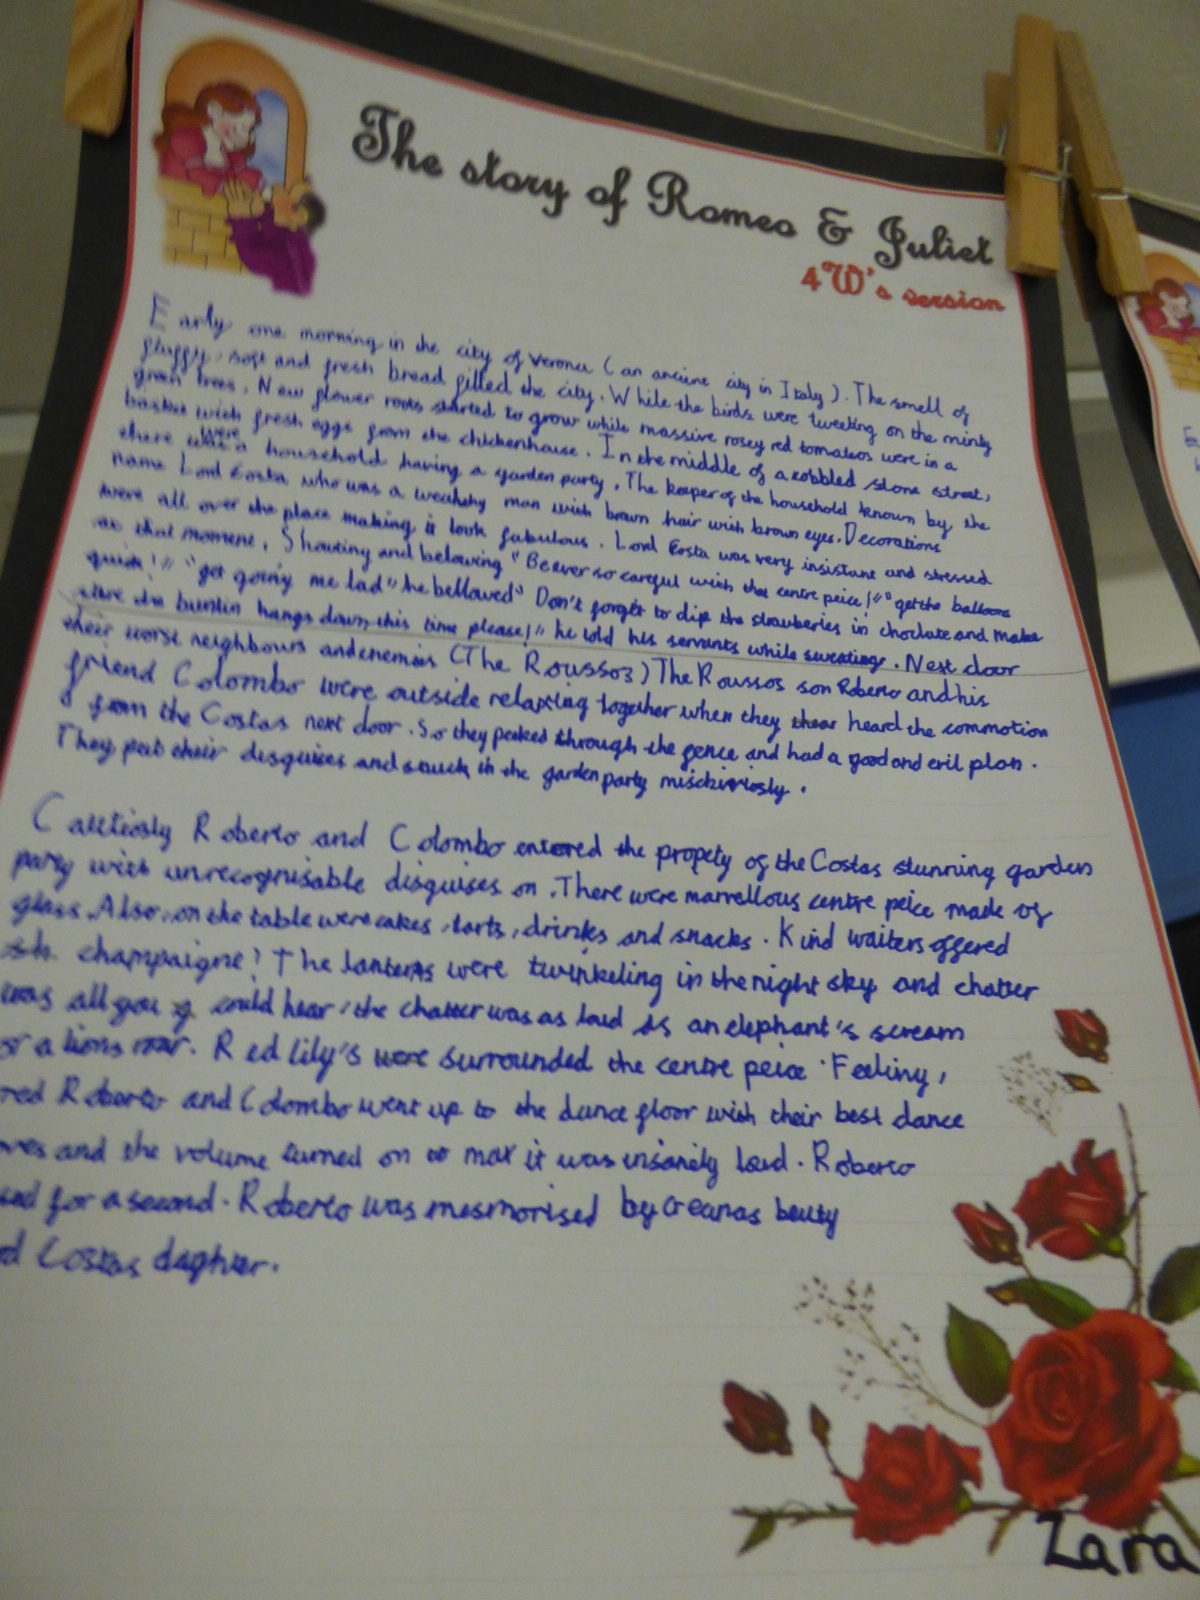 The story of Romeo & Juliet
4W's version
Early one morning in the city of Verona (an ancient city in Italy). The smell of
fluffy, soft and fresh bread filled the city. While the birds were tweeting on the minty
green trees. New flower roots started to grow while massive rosey red tomatoes were in a
basket with fresh eggs from the chickenhouse. In the middle of a cobbled stone street,
there were a household having a garden party. The keeper of the household known by the
name Lord Costa who was a wealthy man with brown hair with brown eyes. Decorations
were all over the place making it look fabulous. Lord Costa was very insistant and stressed
at that moment. Shouting and belowing "Be ever so careful with that centre peice!" "get the balloons
quick!" "get going me lad" he bellowed" Don't forget to dip the strawberies in choclate and make
sure the buntin hangs down this time please!" he told his servants while sweating. Next door
their worse neighbours and enemies (The Roussos) The Roussos son Roberto and his
friend Colombo were outside relaxing together when they heard the commotion
from the Costas next door. So they peaked through the fence and had a good and evil plan.
They put their disguises and snuck in the garden party mischiviosly.
Cautiosly Roberto and Colombo entered the propety of the Costas stunning garden
party with unrecognisable disguises on. There were marvellous centre peice made of
glass. Also, on the table were cakes, tarts, drinks and snacks. Kind waiters offered
champaigne! The lanterns were twinkeling in the night sky and chatter
was all you could hear, the chatter was as loud as an elephant's scream
or a lions roar. Red lily's were surrounded the centre peice. Feeling,
Roberto and Colombo went up to the dance floor with their best dance
and the volume turned on to max it was insanely loud. Roberto
for a second. Roberto was mesmorised by beuty
Costas daghter.
Zara